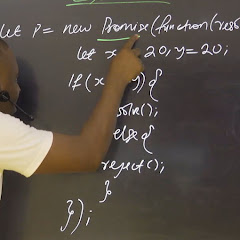 let P = new Promise(function(reso
let x 20, y = 20;
if(x y) {
solve();
else {
reject();
}
});